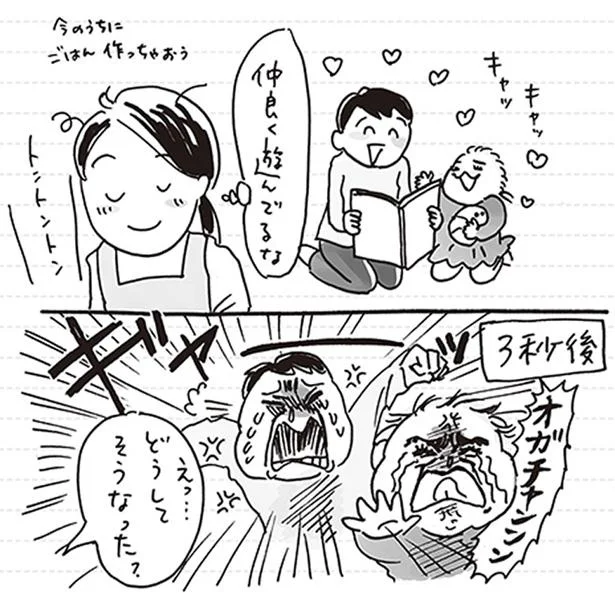 今のうちに
ごはん 作っちゃおう
キャッ
キャッ
仲良く遊んでるな
トントントントン
3秒後
ギャー
オガチャンンン
えっ…
どうして
そうなった?